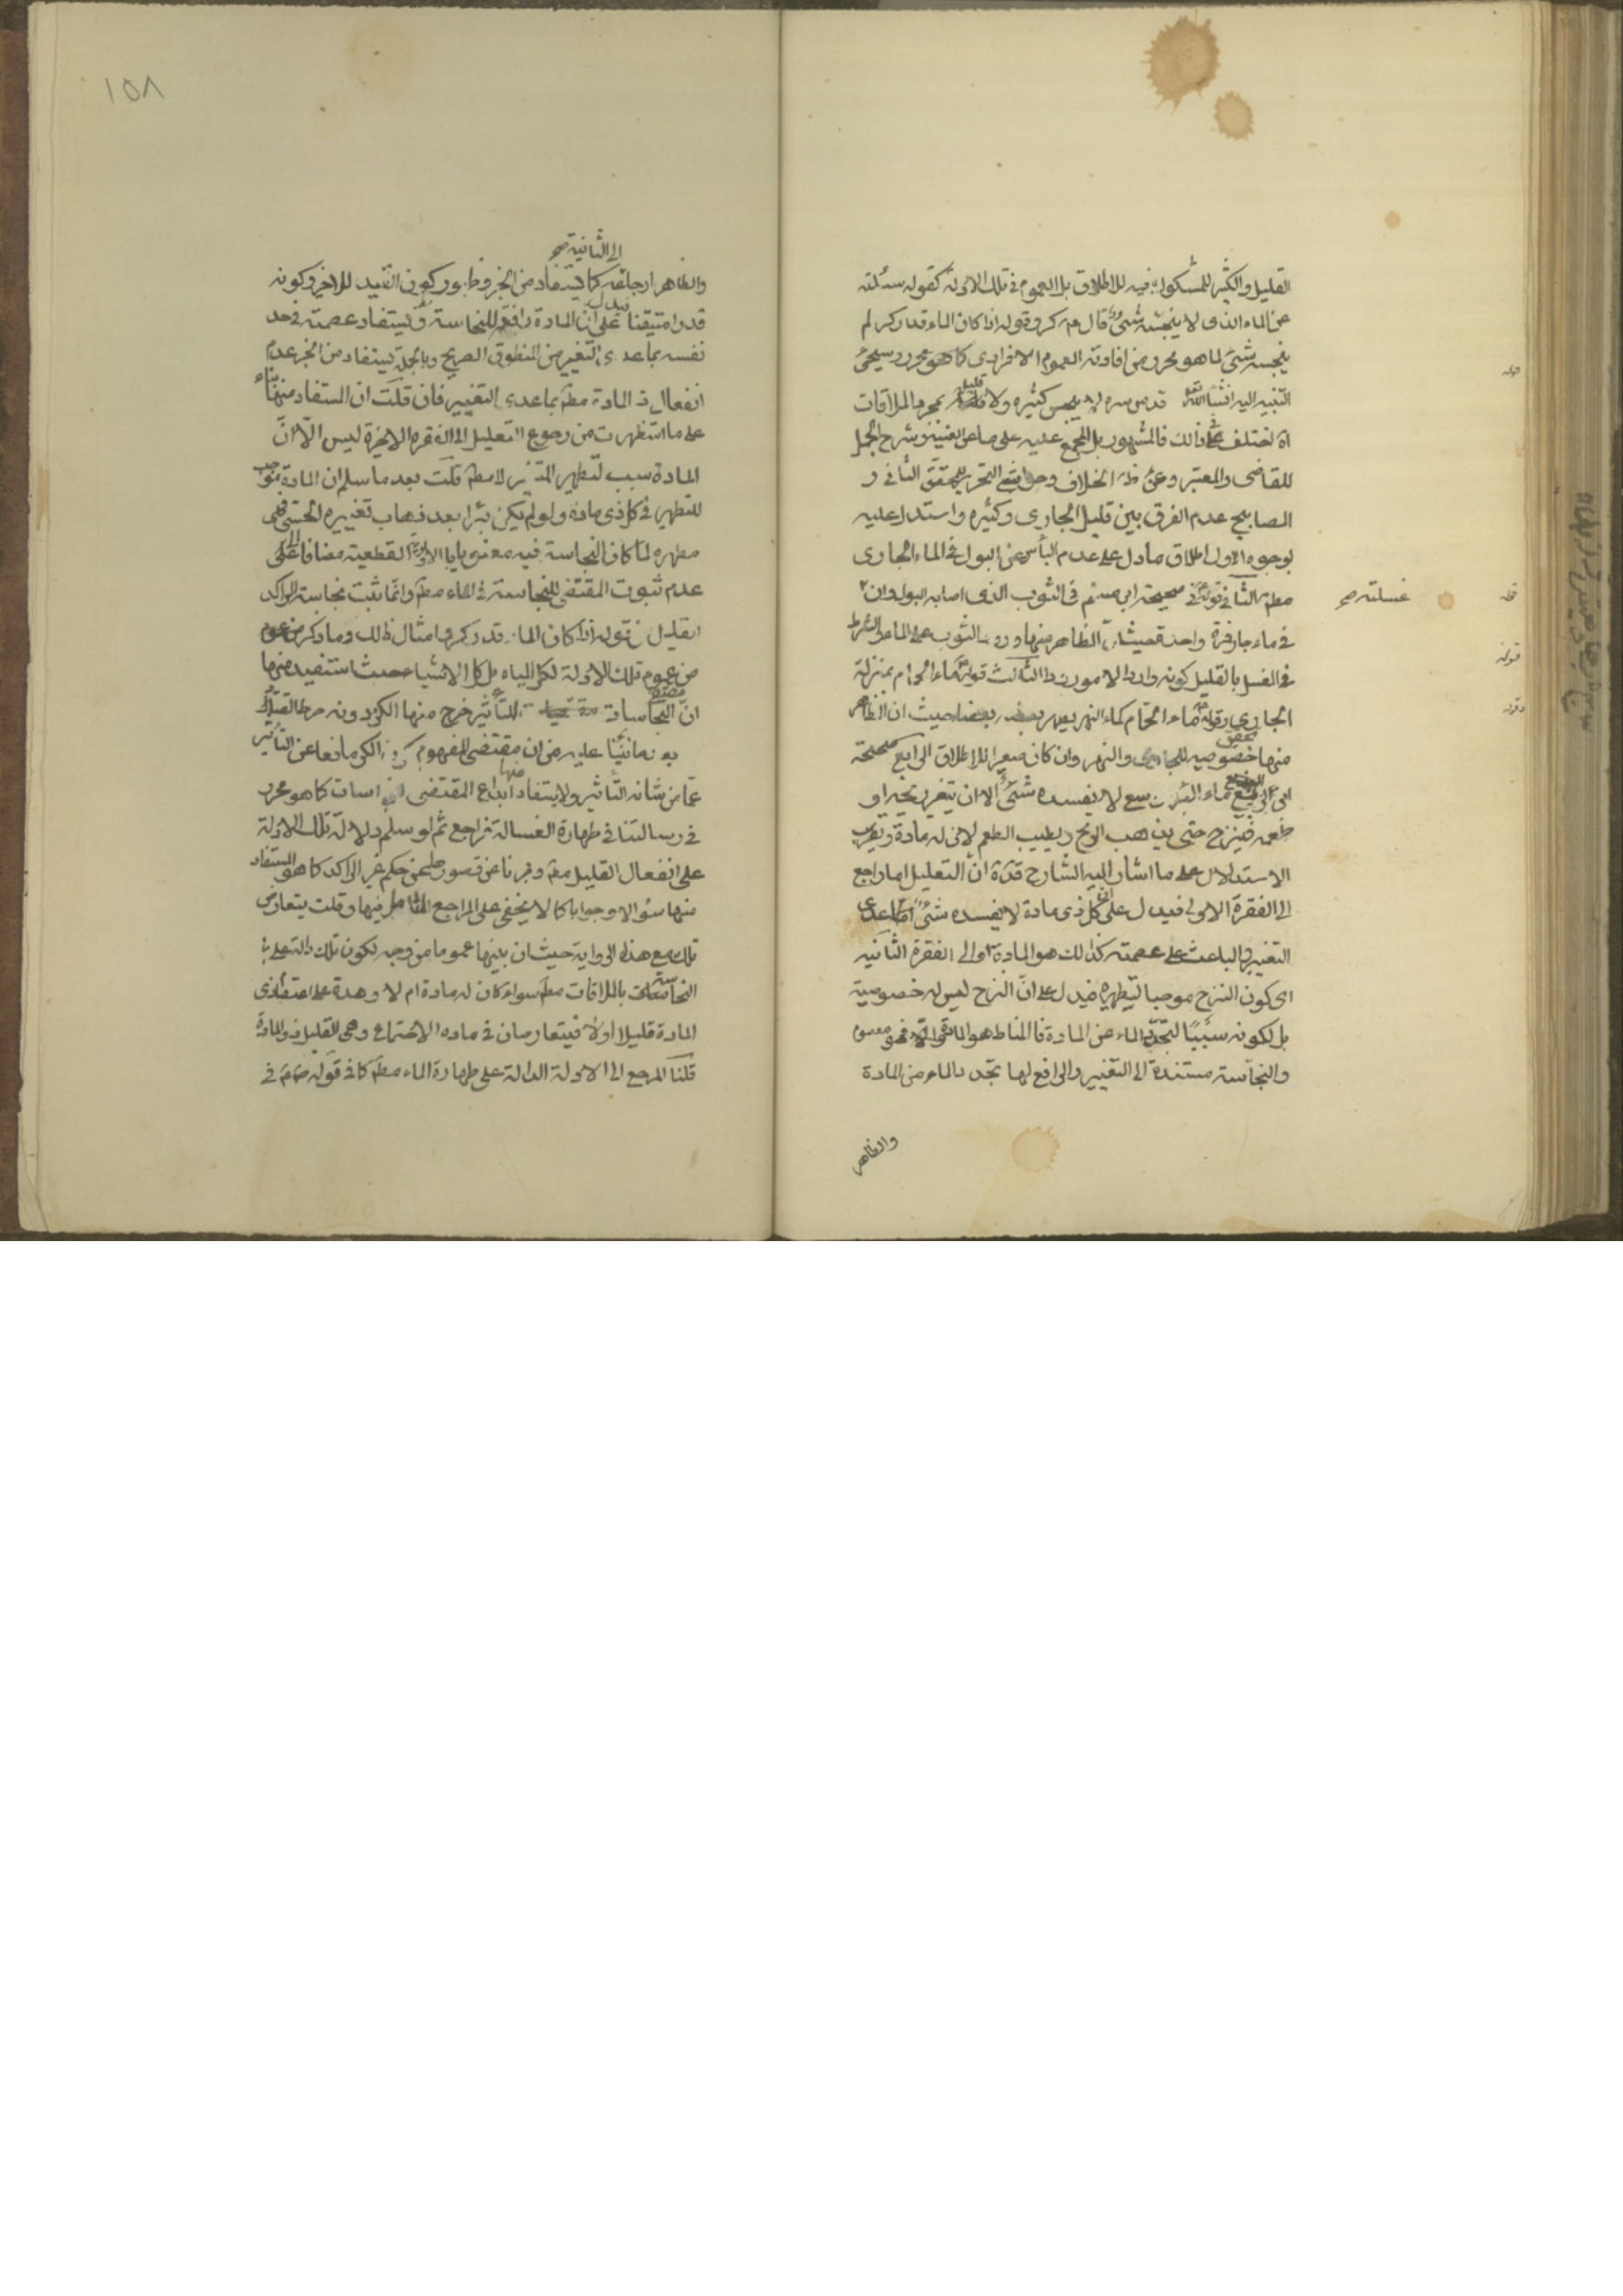 القليل والكثير للشكول فيه للاطلاق بل العموم فى تلك الادلة كقوله سئلته
عن الماء الذى لا ينجسه شئ قال ع كر وقوله اذا كان الماء قدر كر لم
ينجسه شئ لما هو محرر من افادته العموم الافرادى كما هو محرر وسيجئ
التنبيه اليه انشاء الله قدس سره لا ينجس كثيره ولا قليله بمجرد الملاقات
اختلف فى ذلك فالمشهور بل المجمع عليه على ما عن الغنية وشرح الجمل
للقاضى والمعتبر وعن ظ الخلاف وحواشى التحرير للمحقق الثانى و
المصابيح عدم الفرق بين قليل الجارى وكثيره واستدل عليه
بوجوه الاول اطلاق ما دل على عدم البأس عن البول فى الماء الجارى
مطم الثانى قوله فى صحيحة ابن مسلم فى الثوب الذى اصابه البول وان
غسلته صح
فى ماء جار فمرة واحدة حيث ان الظاهر منها ورود الثوب على الماء والشرط
فى الغسل بالقليل كونه واردا لا مورودا الثالث قوله ماء الحمام بمنزلة
الجارى وقوله ماء الحمام كماء النهر يطهر بعضه بعضا حيث ان الظاهر
منها خصوصية للجارى والنهر وان كان صغيرا للاطلاق الرابع صحيحة
ابن بزيع ماء البئر واسع لا يفسده شئ الا ان يتغير ريحه او
طعمه فينزح حتى يذهب الريح ويطيب الطعم لان له مادة وتقريب
الاستدلال على ما اشار اليه الشارح قده ان التعليل اما راجع
الى الفقرة الاولى فيدل على ان كل ذى مادة لا يفسده شئ مما عدى
التغيير والباعث على عصمته كذلك هو المادة او الى الفقرة الثانية
اى كون النزح موجبا لتطهيره فيدل على ان النزح ليس له خصوصية
بل لكونه سببا لتجدد الماء عن المادة فالمناط هو
والنجاسة مستندة الى التغيير والرافع لها تجدد الماء من المادة
والظاهر
١٥٨
الى الثانية صح
والظاهر ارجاعه كما يستفاد من الخبر وظهور كون القيد للاخير وكونه
قدرا متيقنا فيدل على ان المادة رافعة للنجاسة ويستفاد عصمته فى حد
نفسه بما عدى التغيير من المنطوق الصريح وبالجملة يستفاد من الخبر عدم
انفعال ذى المادة مطم بما عدى التغيير فان قلت ان المستفاد منها بناء
على ما استظهرت من رجوع التعليل الى الفقره الاخيرة ليس الا ان
المادة سبب لتطهير المتغير لا مطم قلت بعد ما سلم ان المادة موجب
للتطهير فى كل ذى مادة ولو لم يكن بئرا بعد ذهاب تغييره الحسى فهى
مطهره لما كان النجاسة فيه القطعية مضافا الى
عدم ثبوت المقتضى للنجاسة فى الماء مطم وانما ثبت نجاسة الراكد
القليل من قوله اذا كان الماء قدر كر وامثال ذلك وما ذكر من عموم
من عموم تلك الادلة لكل المياه بل كل الاشياء حيث استفيد منها
ان النجاسات مقتضية للتأثير خرج منها الكر دونه
بعد ما نبّهنا عليه من ان مقتضى المفهوم كون الكر مانعا عن التأثير
عما من شانه التأثير ولا يستفاد منها ابداع المقتضى النجاسات كما هو محرر
فى رسالتنا فى طهارة الغسالة فراجع ثم لو سلم دلالة تلك الادلة
على انفعال القليل مطم وفررنا عن قصور حلها عن حكم غير الراكد كما هو المستفاد
منها سئوالا وجوابا كما لا يخفى على المراجع المتأمل فيها وقلت يتعارض
تلك مع هذه الرواية حيث ان بينها عموما من وجه لكون تلك دالة على
النجاسة بالملاقات مطم سواء كان له مادة ام لا وهذه على اعتصام ذى
المادة قليلا او لا فيتعارضان فى ماده الاجتماع وهى القليل ذو المادة
قلنا المرجع الى الادلة الدالة على طهارة الماء مطم كما فى قوله ص م فى